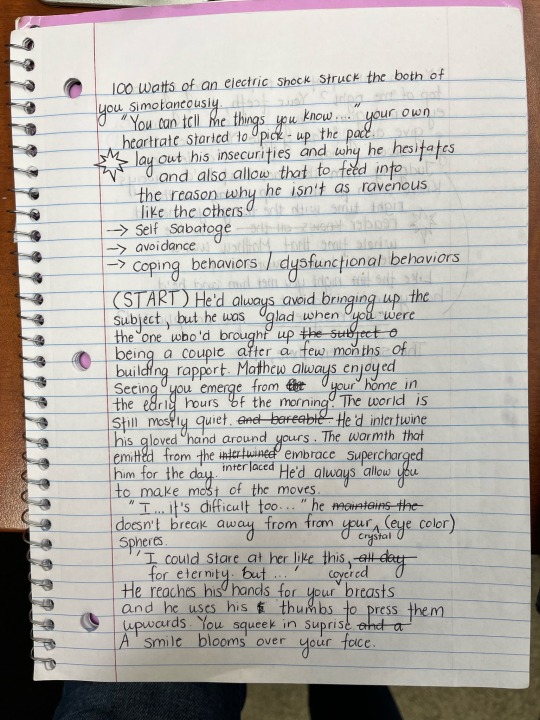 100 Watts of an electric shock struck the both of
you simotaneously.
"You can tell me things you know..." your own
heartrate started to pick-up the pace.
lay out his insecurities and why he hesitates
and also allow that to feed into
the reason why he isn't as ravenous
like the others
-> Self Sabatoge
-> avoidance
-> coping behaviors / dysfunctional behaviors
(START) He'd always avoid bringing up the
subject, but he was glad when you were
the one who'd brought up the subject o
being a couple after a few months of
building rapport. Mathew always enjoyed
Seeing you emerge from your home in
the early hours of the morning. The world is
Still mostly quiet. and bareable. He'd intertwine
his gloved hand around yours. The warmth that
emitted from the intertwined embrace supercharged
him for the day. interlaced He'd always allow you
to make most of the moves.
"I... it's difficult too..." he maintains the
doesn't break away from from your crystal (eye color)
Spheres.
'I could stare at her like this, all day
for eternity. but...'
He reaches his hands for your covered breasts
and he uses his thumbs to press them
upwards. You squeek in suprise and a
A smile blooms over your face.